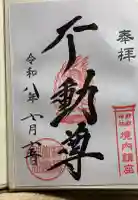 奉拝
不動尊
令和八年
境内講座